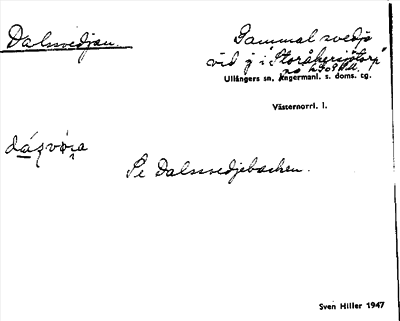 Dalsvedjan.
Gammal svedja
vid g i "Storåkerstorp"
Ullångers sn, Ångermanl. s. doms. tg.
Västernorrl. l.
Se Dalssvedjebacken.
Sven Hiller 1947